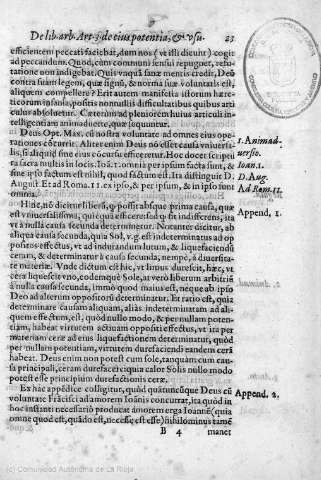 De lib. arb. Art. 3. de eius potentia, & vsu. 23
efficientem peccati faciebat, dum nos (vt illi dicunt) cogit
ad peccandum. Quod, cum communi sensui repugnet, refu-
tatione non indigebat. Quis vnquā sanæ mentis credit, Deū
contra suam legem, quæ signū, & norma suæ voluntatis est,
aliquem compellere? Erit autem manifesta istorum hære-
ticorum insania, positis nonnullis difficultatibus quibus arti
culus absoluetur. Cæterum ad pleniorem huius articuli in-
telligentiam animaduerte, quæ sequuntur.
Deus Opt. Max. cū nostra voluntate ad omnes eius ope-
rationes cōcurrit. Aliter enim Deus nō esset causa vniuersa-
lis, si aliquid sine eius cōcursu efficeretur. Hoc docet scriptu
ra sacra multis in locis. Ioā. 1. omnia per ipsum facta sunt, &
sine ipso factum est nihil, quod factum est. Ita distinguit D.
August. Et ad Roma. 11. ex ipso, & per ipsum, & in ipso sunt
omnia.
1. Animad-
uersio.
Ioan. 1.
D. Aug.
Ad Rom. 11.
Hinc, nō dicitur libera, q̃ possit absque prima causa, quæ
est vniuersalissima, quicquā efficere: sed q̃ sit indifferens, ita
vt a nulla causa secunda determinetur. Notanter dicitur, ab
aliqua causa secunda, quia Sol, v. g. est indeterminatus ad op
positos effectus, vt ad indurandum lutum, & liquefaciendū
ceram, & determinatur à causa secunda, nempè, à diuersita-
te materiæ. Vnde dictum est hic, vt limus durescit, hæc, vt
cera liquescit vno, eodemque Sole, at verò liberum arbitriū
à nulla causa secunda, immò quod maius est, neque ab ipso
Deo ad alterum oppositorū determinatur. Et ratio est, quia
determinare causam aliquam, aliàs indeterminatam ad ali-
quem effectum, est, quòd nullo modo, & per nullam poten-
tiam, habeat virtutem actiuam oppositi effectus, vt ita per
materiam ceræ ad eius liquefactionem determinatur, quòd
per nullam potentiam, virtutem durefaciendi eandem cerā
habeat. Deus enim non potest cum sole, tanquam cum cau-
sa principali, ceram durefacere: quia calor Solis nullo modo
potest esse principium durefactionis ceræ.
Append. 1.
Ex hac appēdice colligitur, quòd quātumcunque Deus cū
voluntate Frācisci ad amorem Ioānis concurrat, ita quòd in
hoc instanti necessariò producat amorem erga Ioannē (quia
omne quod est, quādo est, necesse est esse) nihilominus tamē
Append. 2.
B 4 manet
(c) Comunidad Autónoma de La Rioja